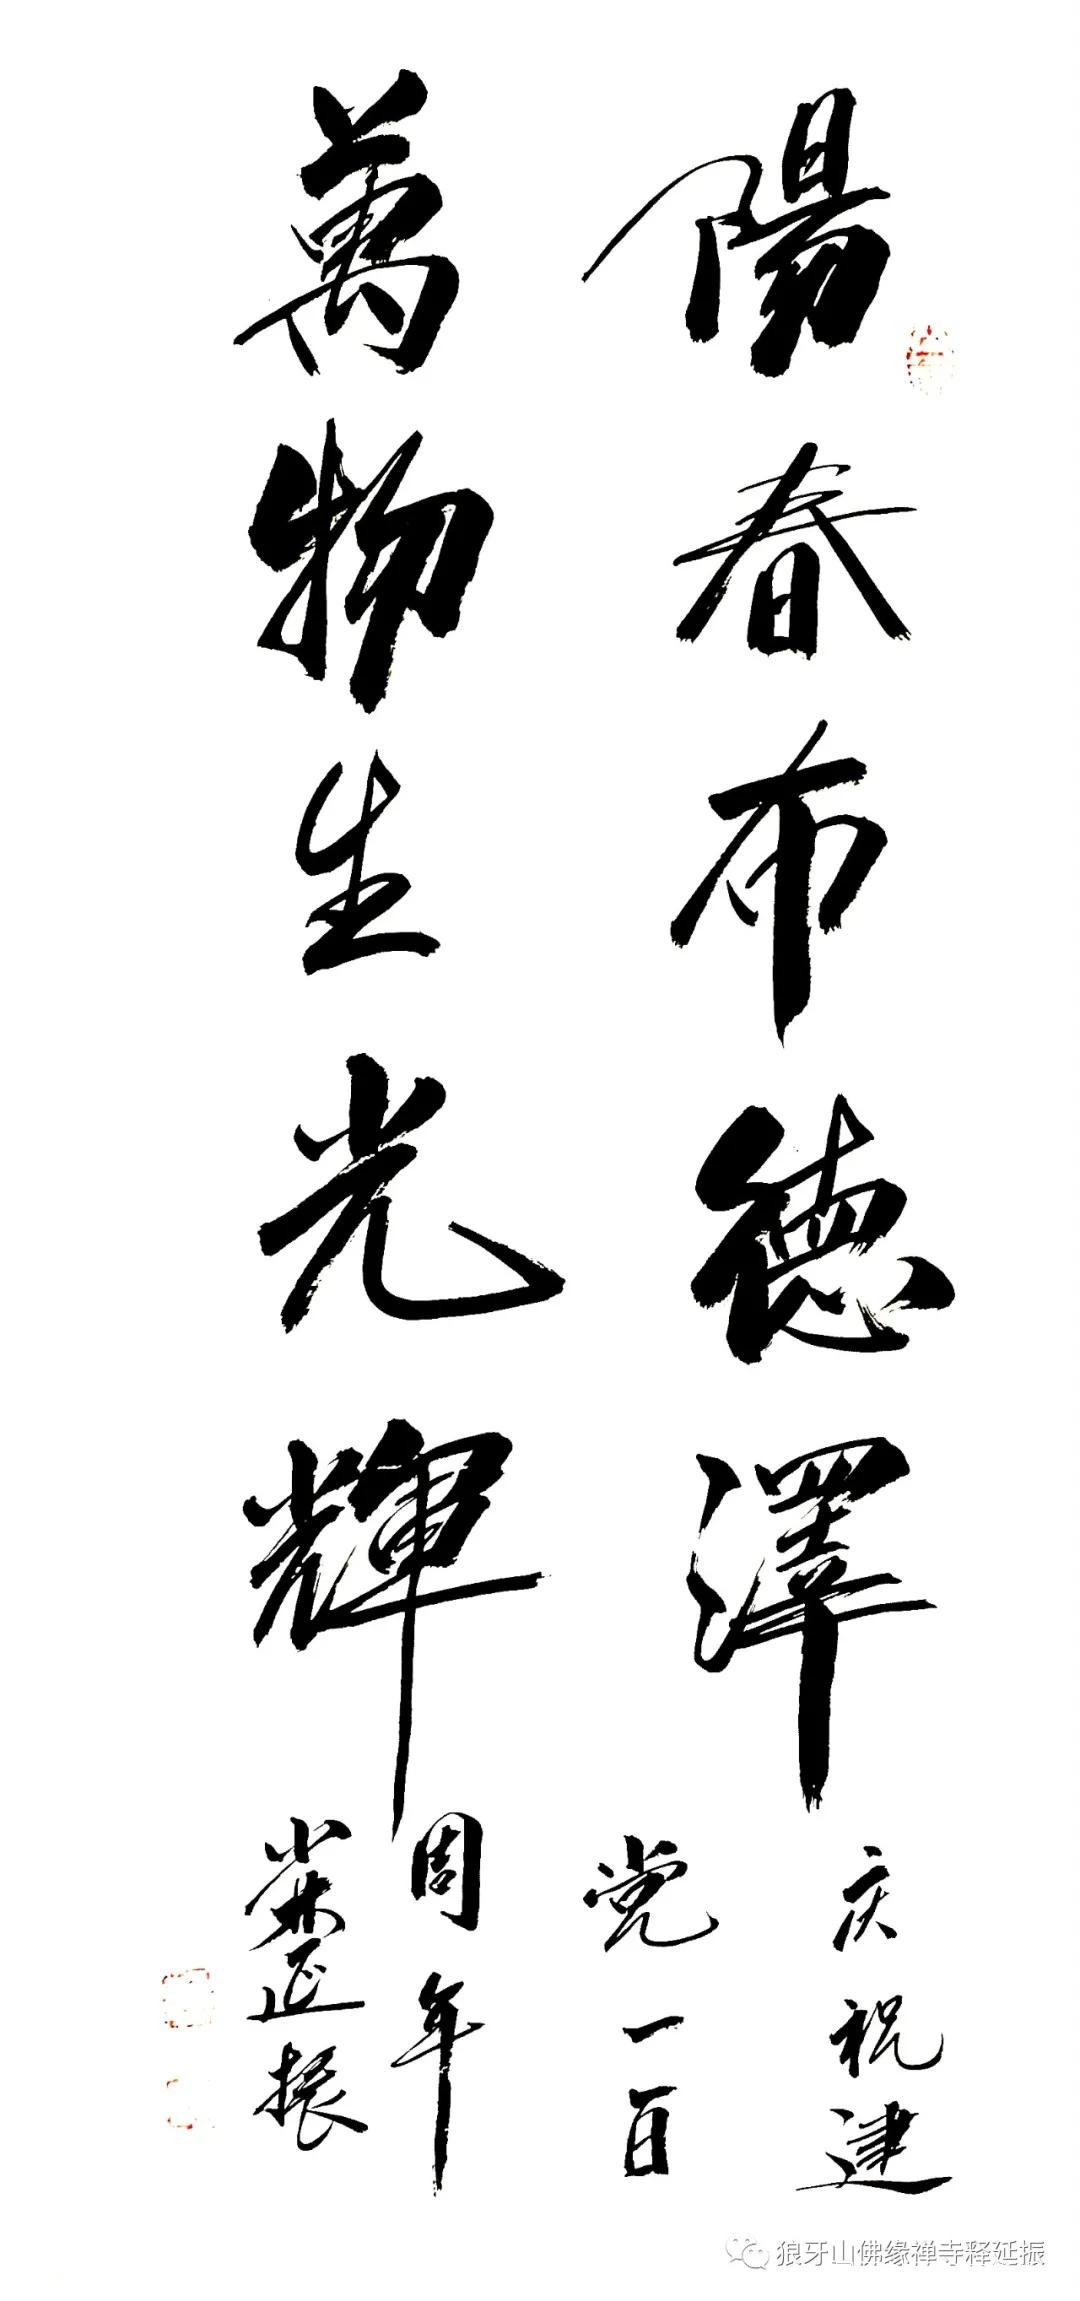 陽春布德澤
萬物生光輝
庆祝建
党一百
周年
柴延振
狼牙山佛缘禅寺释延振